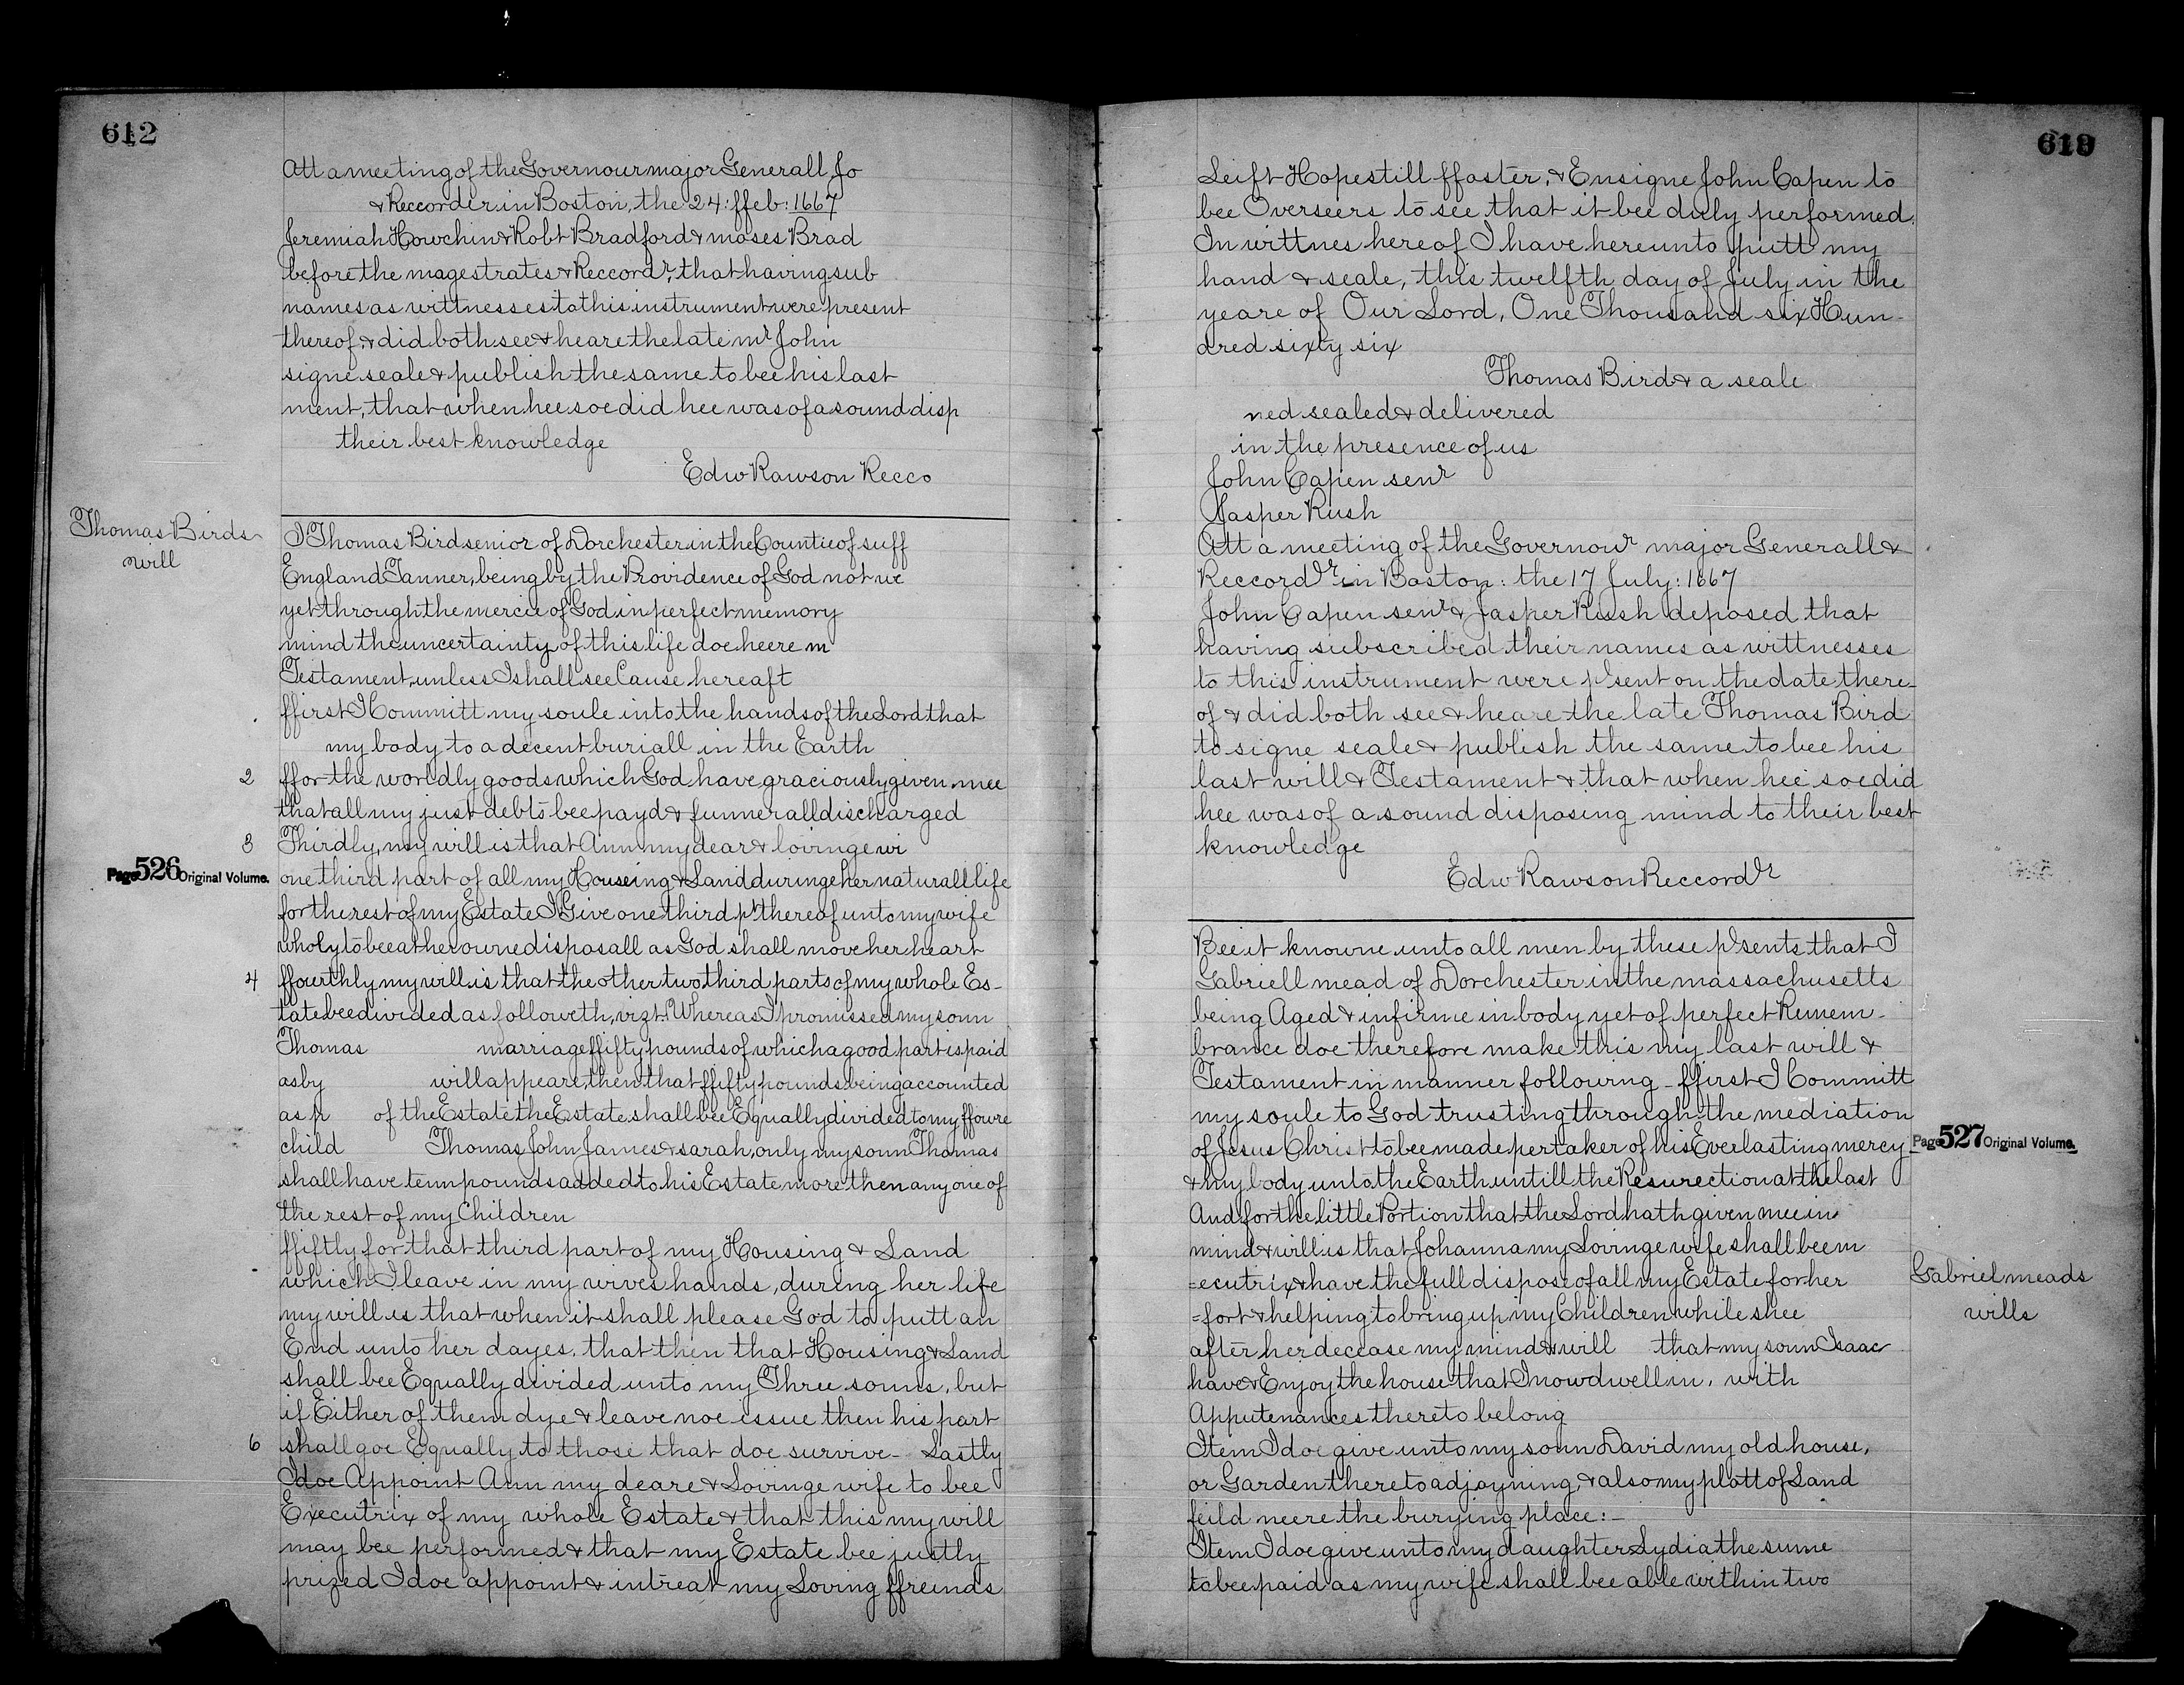 612
Att a meeting of the Governour major Generall Jo
& Reccorder in Boston, the 24: ffeb: 1667
Jeremiah Howchin & Robt Bradford & moses Brad
before the magestrates & Reccordr, that having sub
names as wittnesses to this instrument were present
thereof & did both see & heare the late mr John
signe seale & publish the same to bee his last
ment, that when hee soe did hee was of a sound disp
their best knowledge
Edw Rawson Recco
Thomas Birds
will
I Thomas Bird senior of Dorchester in the Countie of suff
England Tanner, being by the Providence of God not we
yet through the mercie of God in perfect memory
mind the uncertainty of this life doe heere m
Testament, unless I shall see Cause hereaft
ffirst I Committ my soule into the hands of the Lord that
my body to a decent buriall in the Earth
2 ffor the worldly goods which God have graciously given mee
that all my just debts bee payd & funnerall discharged
3 Thirdly, my will is that Ann my dear & lovinge wi
Page 526 Original Volume.
one third part of all my Houseing & Land duringe her naturall life
for the rest of my Estate I Give one third pt thereof unto my wife
wholy to bee at her owne disposall as God shall move her heart
4 ffourthly my will is that the other two third parts of my whole Es-
tate bee divided as followeth, vizt. Whereas I promissed my sonn
Thomas marriage ffifty pounds of which a good part is paid
as by will appeare, then that ffifty pounds being accounted
as p of the Estate the Estate shall bee Equally divided to my ffowre
child Thomas John James & sarah, only my sonn Thomas
shall have tenn pounds added to his Estate more then any one of
the rest of my Children
ffiftly for that third part of my Housing & Land
which I leave in my wives hands, during her life
my will is that when it shall please God to putt an
End unto her dayes, that then that Housing & Land
shall bee Equally divided unto my Three sonns, but
if Either of them dye & leave noe issue then his part
6 shall goe Equally to those that doe survive- Lastly
I doe Appoint Ann my deare & Lovinge wife to bee
Executrix of my whole Estate & that this my will
may bee performed & that my Estate bee justly
prized I doe appoint & intreat my Loving ffreinds
Leift Hopestill ffoster, & Ensigne John Capen to
bee Overseers to see that it bee duly performed.
In wittnes hereof I have hereunto putt my
hand & seale, this twelfth day of July in the
yeare of Our Lord, One Thousand six Hun-
dred sixty six
Thomas Bird & a seale
ned sealed & delivered
in the presence of us
John Capen senr
Jasper Rush
Att a meeting of the Governour major Generall &
Reccordr in Boston: the 17 July: 1667
John Capen senr & Jasper Rush deposed that
having subscribed their names as wittnesses
to this instrument were psent on the date there-
of & did both see & heare the late Thomas Bird
to signe seale & publish the same to bee his
last will & Testament & that when hee soe did
hee was of a sound disposing mind to their best
knowledge
Edw Rawson Reccordr
Bee it knowne unto all men by these psents that I
Gabriell mead of Dorchester in the massachusetts
being Aged & infirme in body yet of perfect Remem-
brance doe therefore make this my last will &
Testament in manner following - ffirst I Committ
my soule to God trusting through the mediation
of Jesus Christ to bee made pertaker of his Everlasting mercy
Page 527 Original Volume.
& my body unto the Earth untill the Resurection at the last
And for the little Portion that the Lord hath given mee in
mind & will is that Johanna my Lovinge wife shall bee m
=ecutrix & have the full dispose of all my Estate for her
Gabriel meads
wills
=fort & helping to bring up my Children while shee
after her decease my mind & will that my sonn Isaac
have & Enjoy the house that I now dwell in, with
Apputenances thereto belong
Item I doe give unto my sonn David my old house,
or Garden thereto adjoyning, & also my plott of Land
feild neere the burying place:-
Item I doe give unto my daughter Lydia the sume
to bee paid as my wife shall bee able within two